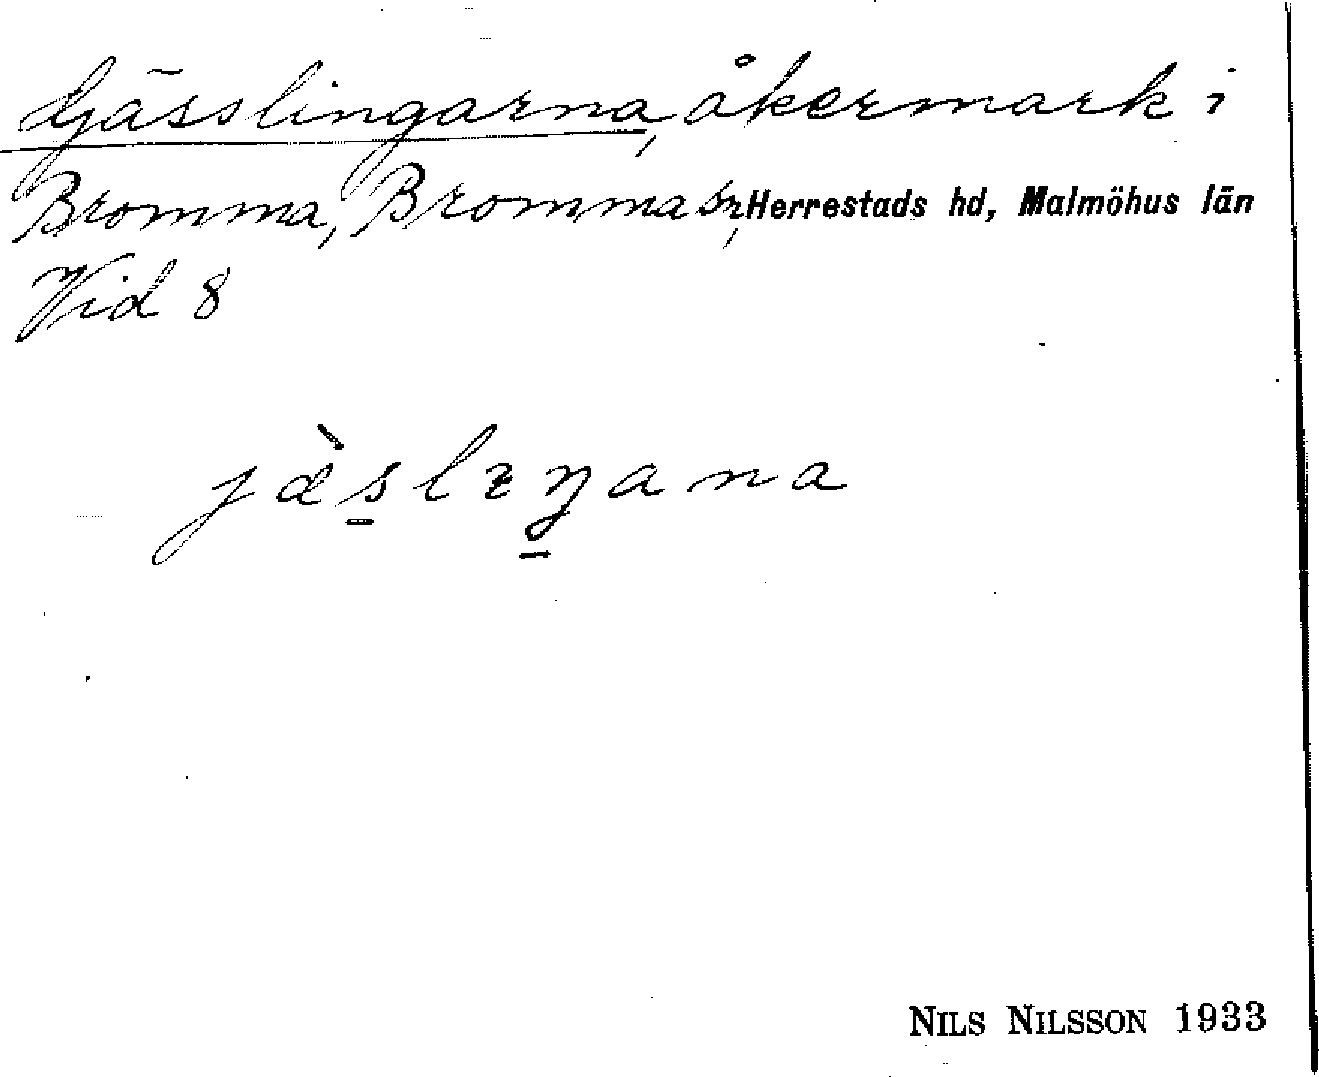 Gässlingarna, åkermark i
Bromma, Bromma sn, Herrestads hd, Malmöhus län
Vid 8
jæ̀s̠lɪŋ̠ana
NILS NILSSON 1933